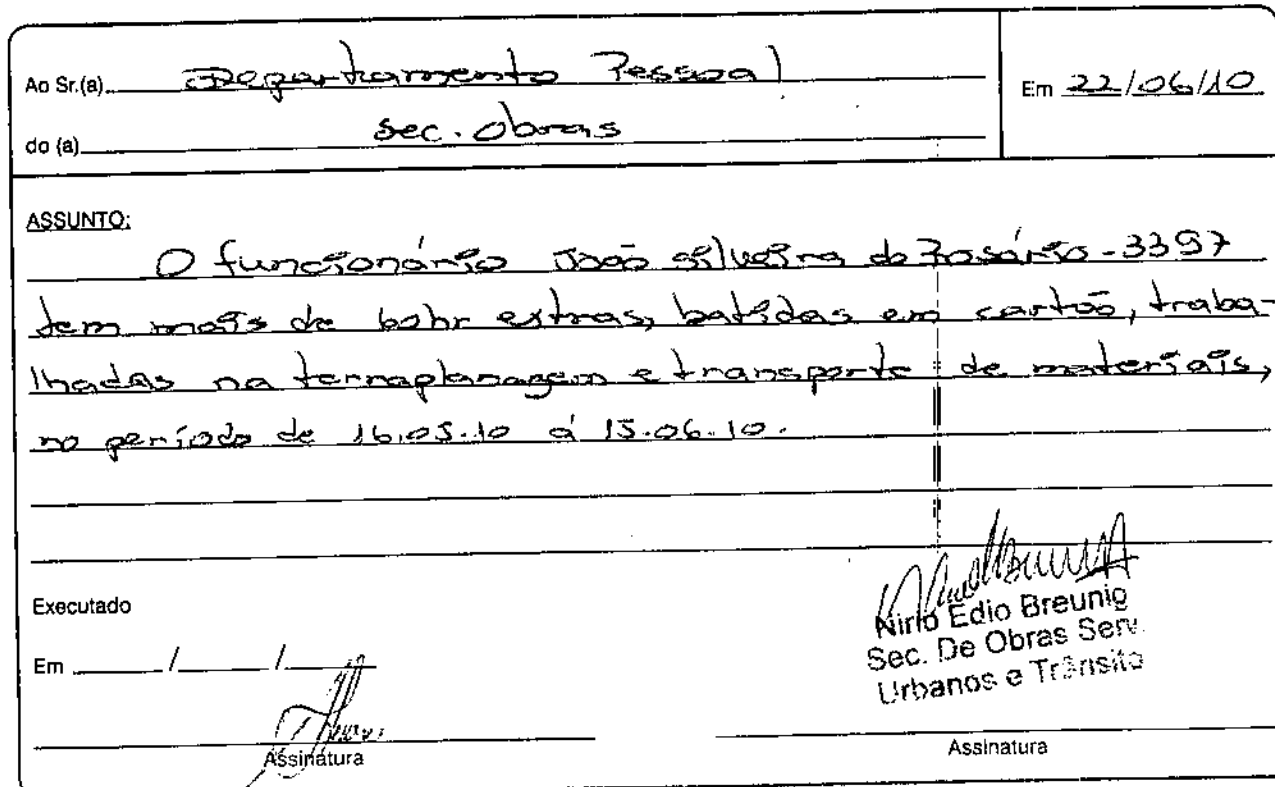 Ao Sr.(a) Departamento Pessoal
Em 22/06/10
do (a) Sec. Obras
ASSUNTO:
O funcionário João Silveira do Rosário - 3397
tem mais de 60hr extras, batidas em cartão, traba-
lhadas na terraplanagem e transporte de materiais,
no período de 16.05.10 á 15.06.10.
Executado
Em / /
Nirio Edio Breunig
Sec. De Obras Serv.
Urbanos e Trânsito
Assinatura
Assinatura